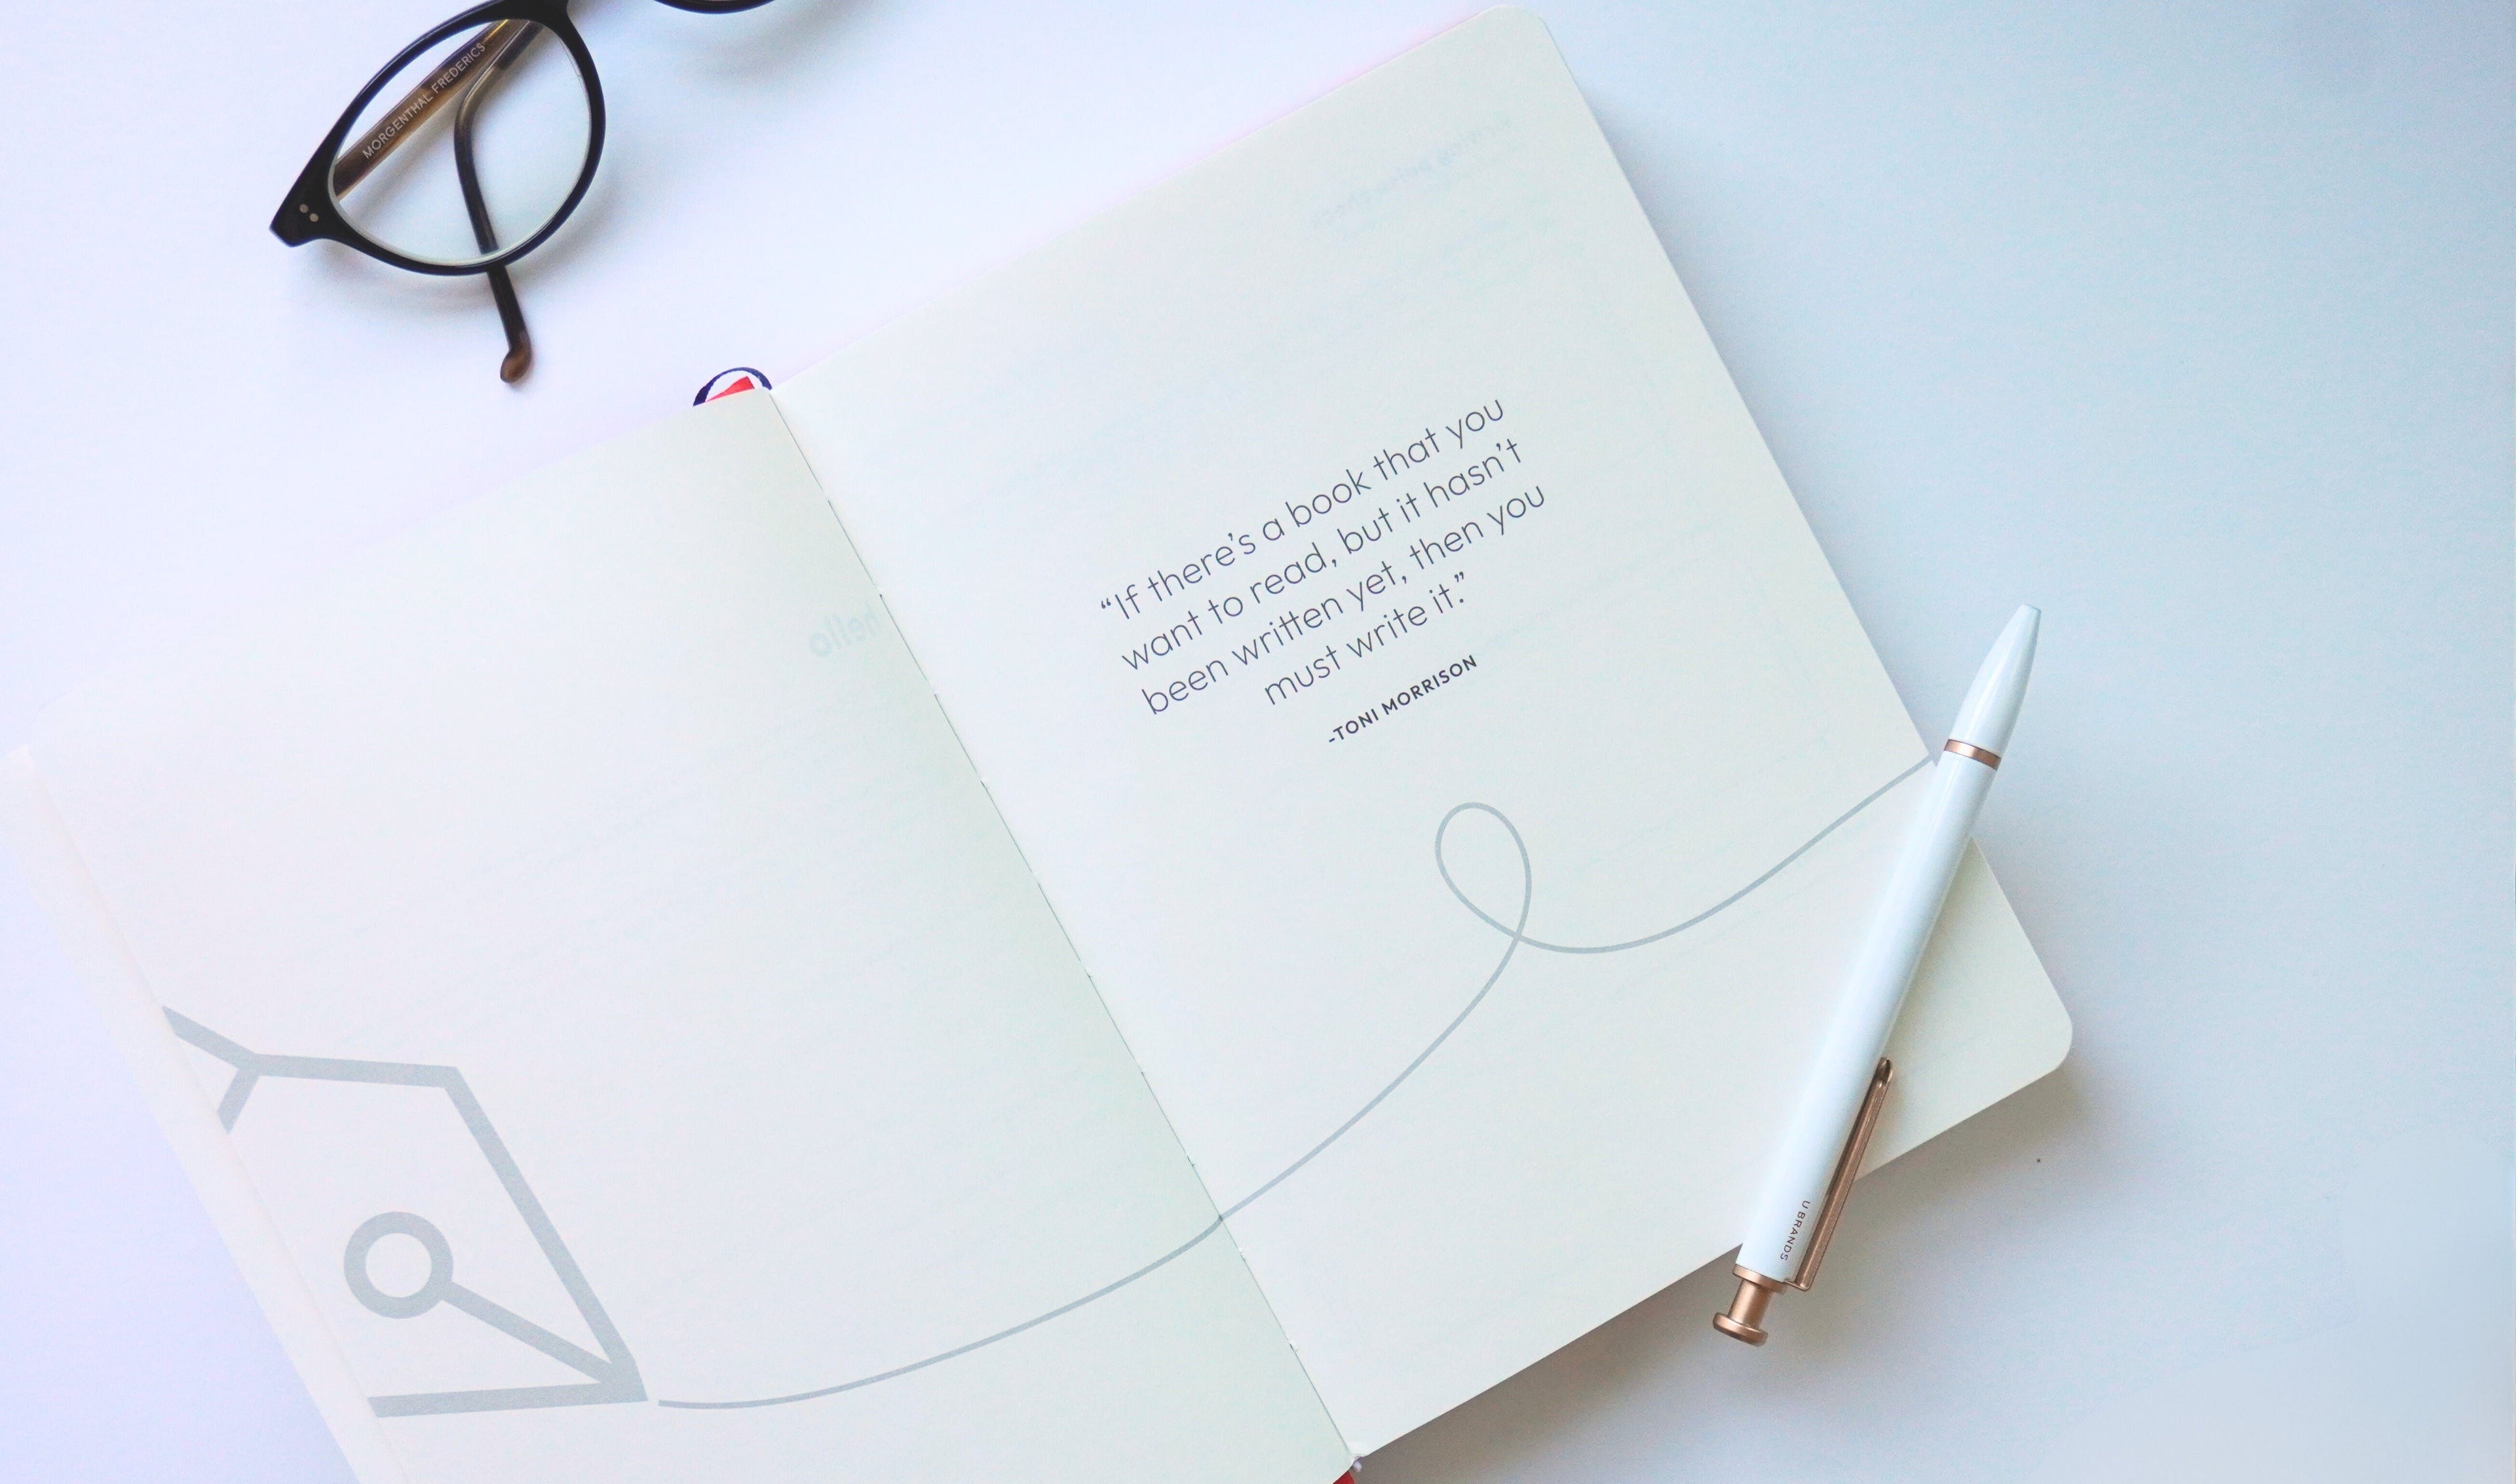 MORGENTHAL FREDERICS
“If there’s a book that you
want to read, but it hasn’t
been written yet, then you
must write it.”
-TONI MORRISON
hello
U BRANDS